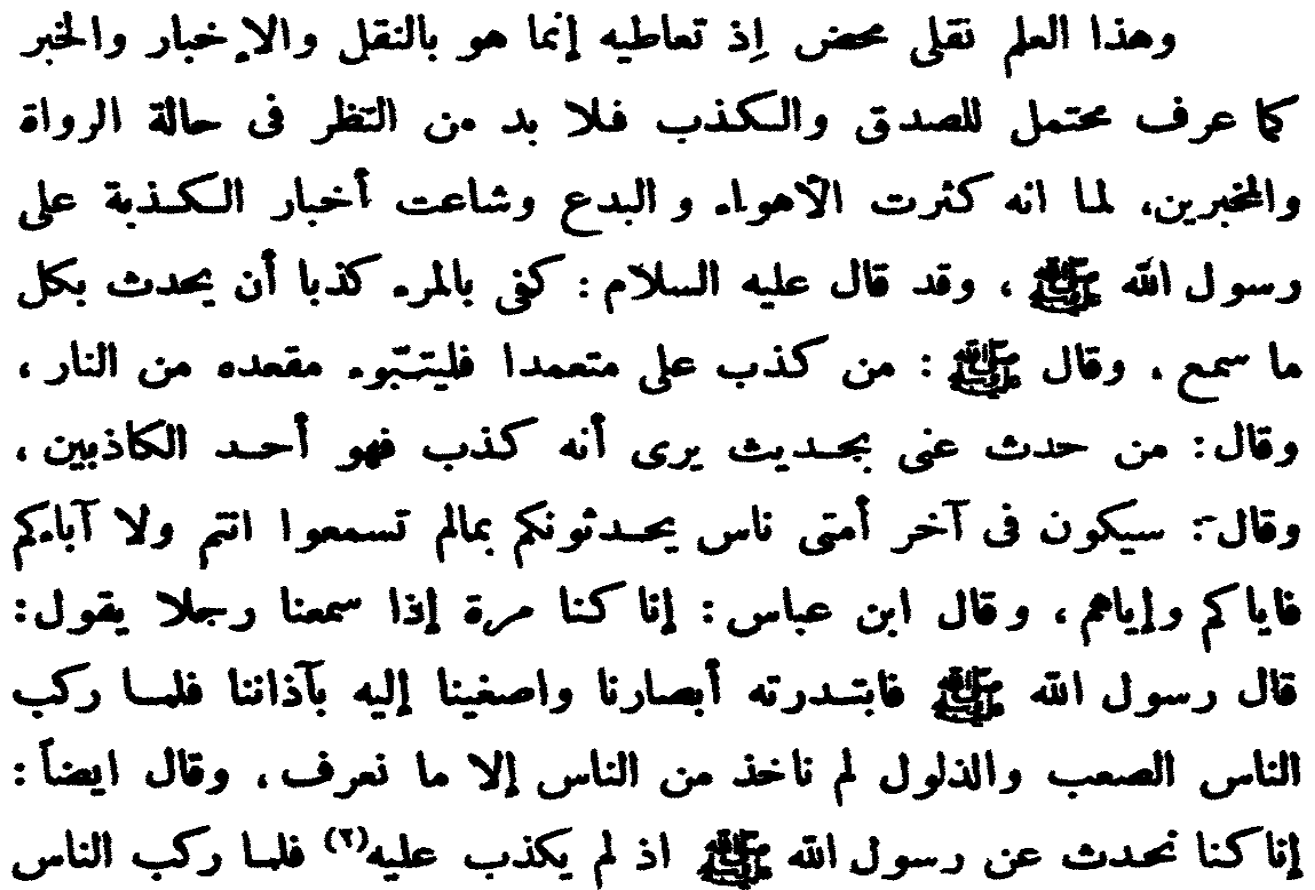 وهذا العلم نقلى محض إذ تعاطيه إنما هو بالنقل والإخبار والخبر
كما عرف محتمل للصدق والكذب فلا بد من النظر فى حالة الرواة
والمخبرين، لما انه كثرت الأهواء و البدع وشاعت أخبار الكذبة على
رسول الله ﷺ ، وقد قال عليه السلام : كفى بالمرء كذبا أن يحدث بكل
ما سمع . وقال ﷺ : من كذب على متعمدا فليتبّوء مقعده من النار ،
وقال : من حدث عنى بحديث يرى أنه كذب فهو أحد الكاذبين ،
وقال : سيكون فى آخر أمتى ناس يحدثونكم بمالم تسمعوا انتم ولا آباءكم
فاياكم وإياهم ، وقال ابن عباس : إنا كنا مرة إذا سمعنا رجلا يقول :
قال رسول الله ﷺ فابتدرته أبصارنا واصغينا إليه بآذاننا فلما ركب
الناس الصعب والذلول لم ناخذ من الناس إلا ما نعرف ، وقال ايضاً :
إنا كنا نحدث عن رسول الله ﷺ اذ لم يكذب عليه(٢) فلما ركب الناس